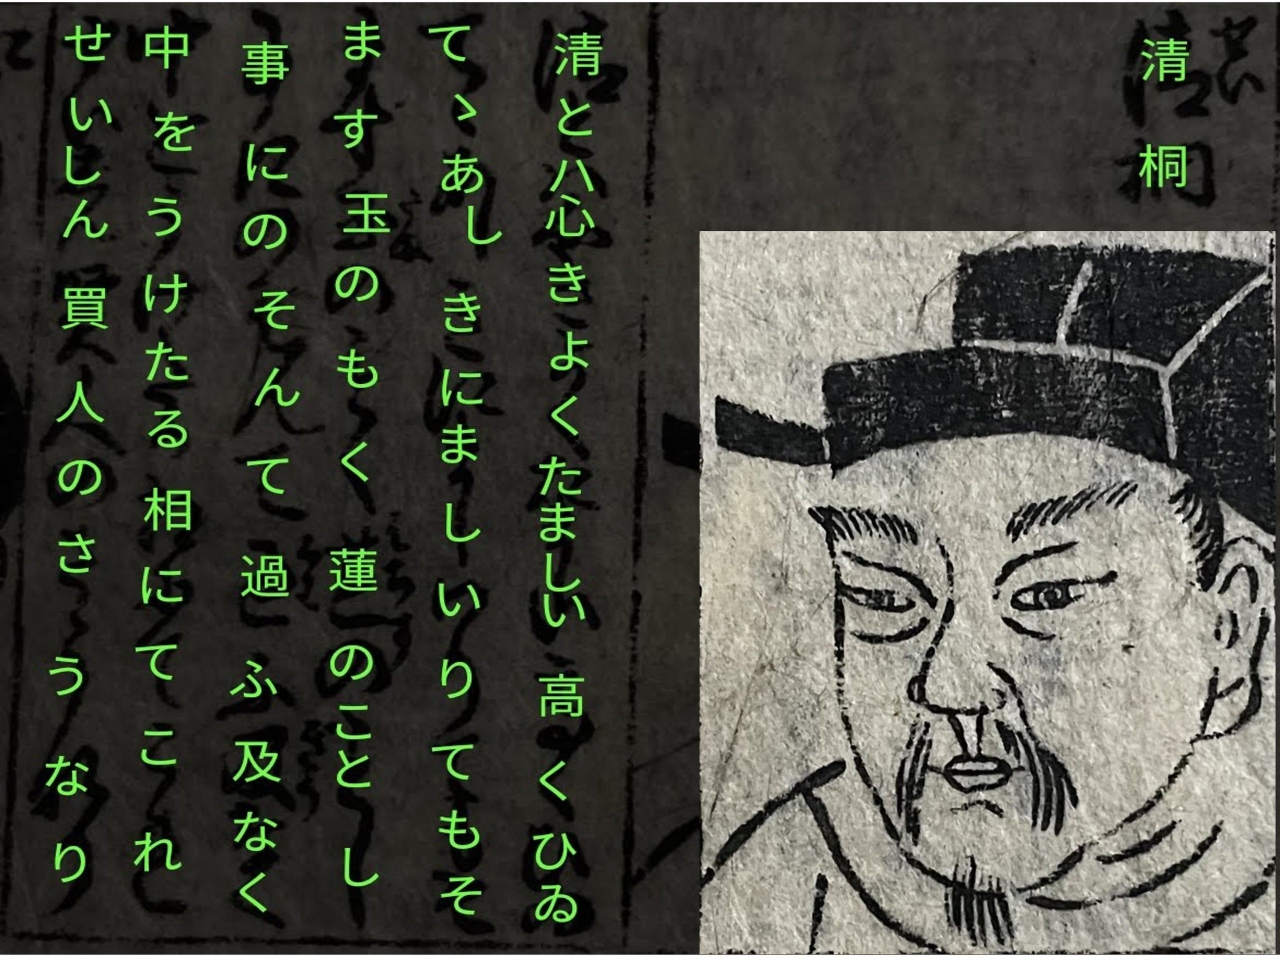 清桐
清とハ心きよくたましい高くひゐ
てゝあしきにましいりてもそ
ます玉のもく蓮のことし
事にのそんて過ふ及なく
中をうけたる相にてこれ
せいしん買人のさうなり